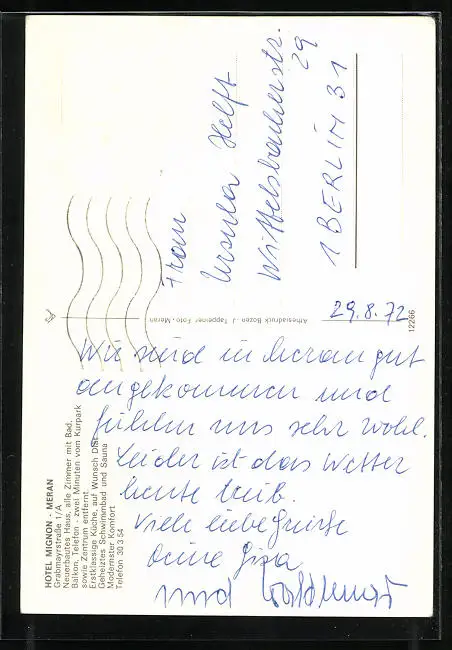 HOTEL MIGNON - MERAN
Grabmayrstraße 1/A
Neuerbautes Haus, alle Zimmer mit Bad,
Balkon, Telefon - zwei Minuten vom Kurpark
sowie Zentrum entfernt
Erstklassige Küche, auf Wunsch Diät
Geheiztes Schwimmbad und Sauna
Modernster Komfort
Telefon 30 3 54
Athesiadruck Bozen - J. Tappeiner Foto - Meran
12266
29.8.72
Wir sind in Meran gut
angekommen und
fühlen uns sehr wohl.
Leider ist das Wetter
heute trüb.
Viele liebe Grüße
Deine Gisa
und
Frau
Ursula Helft
Wittelsbacherstr.
29
1 BERLIN 31